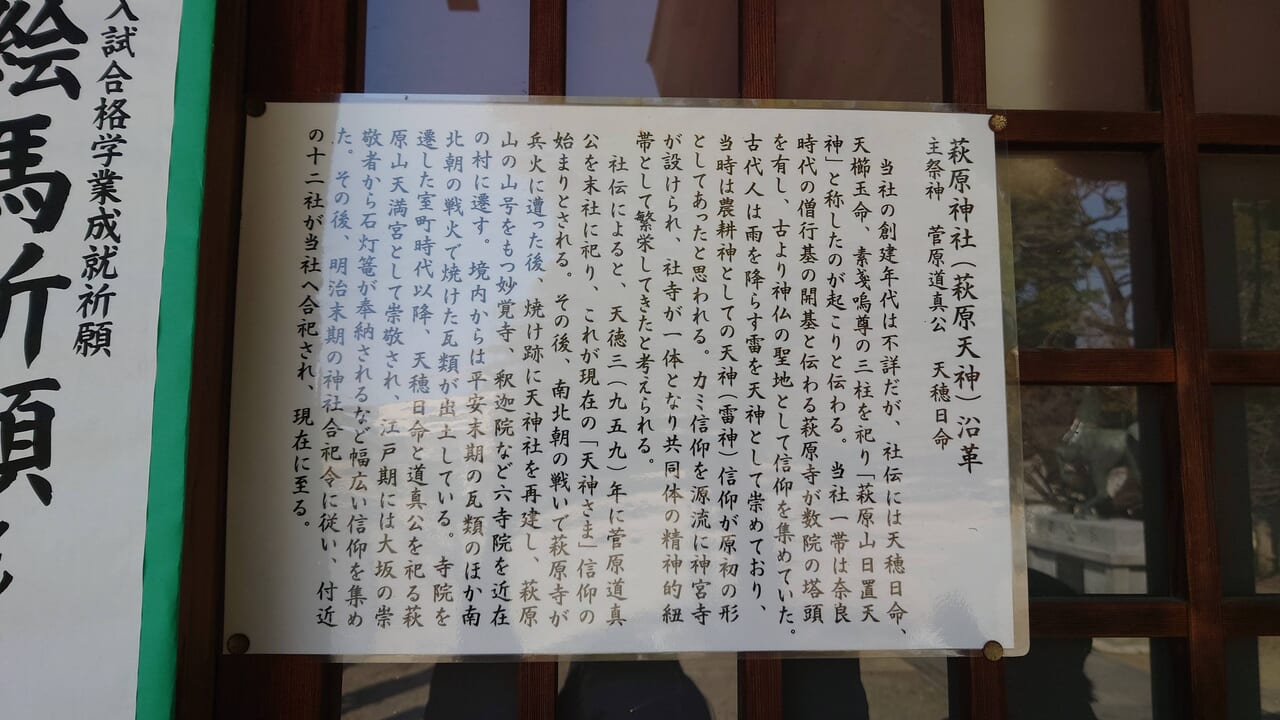 萩原神社(萩原天神)沿革
主祭神　菅原道真公　天穂日命
当社の創建年代は不詳だが、社伝には天穂日命、
天櫛玉命、素戔嗚尊の三柱を祀り「萩原山日置天
神」と称したのが起こりと伝わる。当社一帯は奈良
時代の僧行基の開基と伝わる萩原寺が数院の塔頭
を有し、古より神仏の聖地として信仰を集めていた。
古代人は雨を降らす雷を天神として崇めており、
当時は農耕神としての天神(雷神)信仰が原初の形
としてあったと思われる。カミ信仰を源流に神宮寺
が設けられ、社寺が一体となり共同体の精神的紐
帯として繁栄してきたと考えられる。
社伝によると、天徳三(九五九)年に菅原道真
公を末社に祀り、これが現在の「天神さま」信仰の
始まりとされる。その後、南北朝の戦いで萩原寺が
兵火に遭った後、焼け跡に天神社を再建し、萩原
山の山号をもつ妙覚寺、釈迦院など六寺院を近在
の村に遷す。境内からは平安末期の瓦類のほか南
北朝の戦火で焼けた瓦類が出土している。寺院を
遷した室町時代以降、天穂日命と道真公を祀る萩
原山天満宮として崇敬され、江戸期には大坂の崇
敬者から石灯篭が奉納されるなど幅広い信仰を集め
た。その後、明治末期の神社合祀令に従い、付近
の十二社が当社へ合祀され、現在に至る。
入試合格学業成就祈願
絵馬祈願